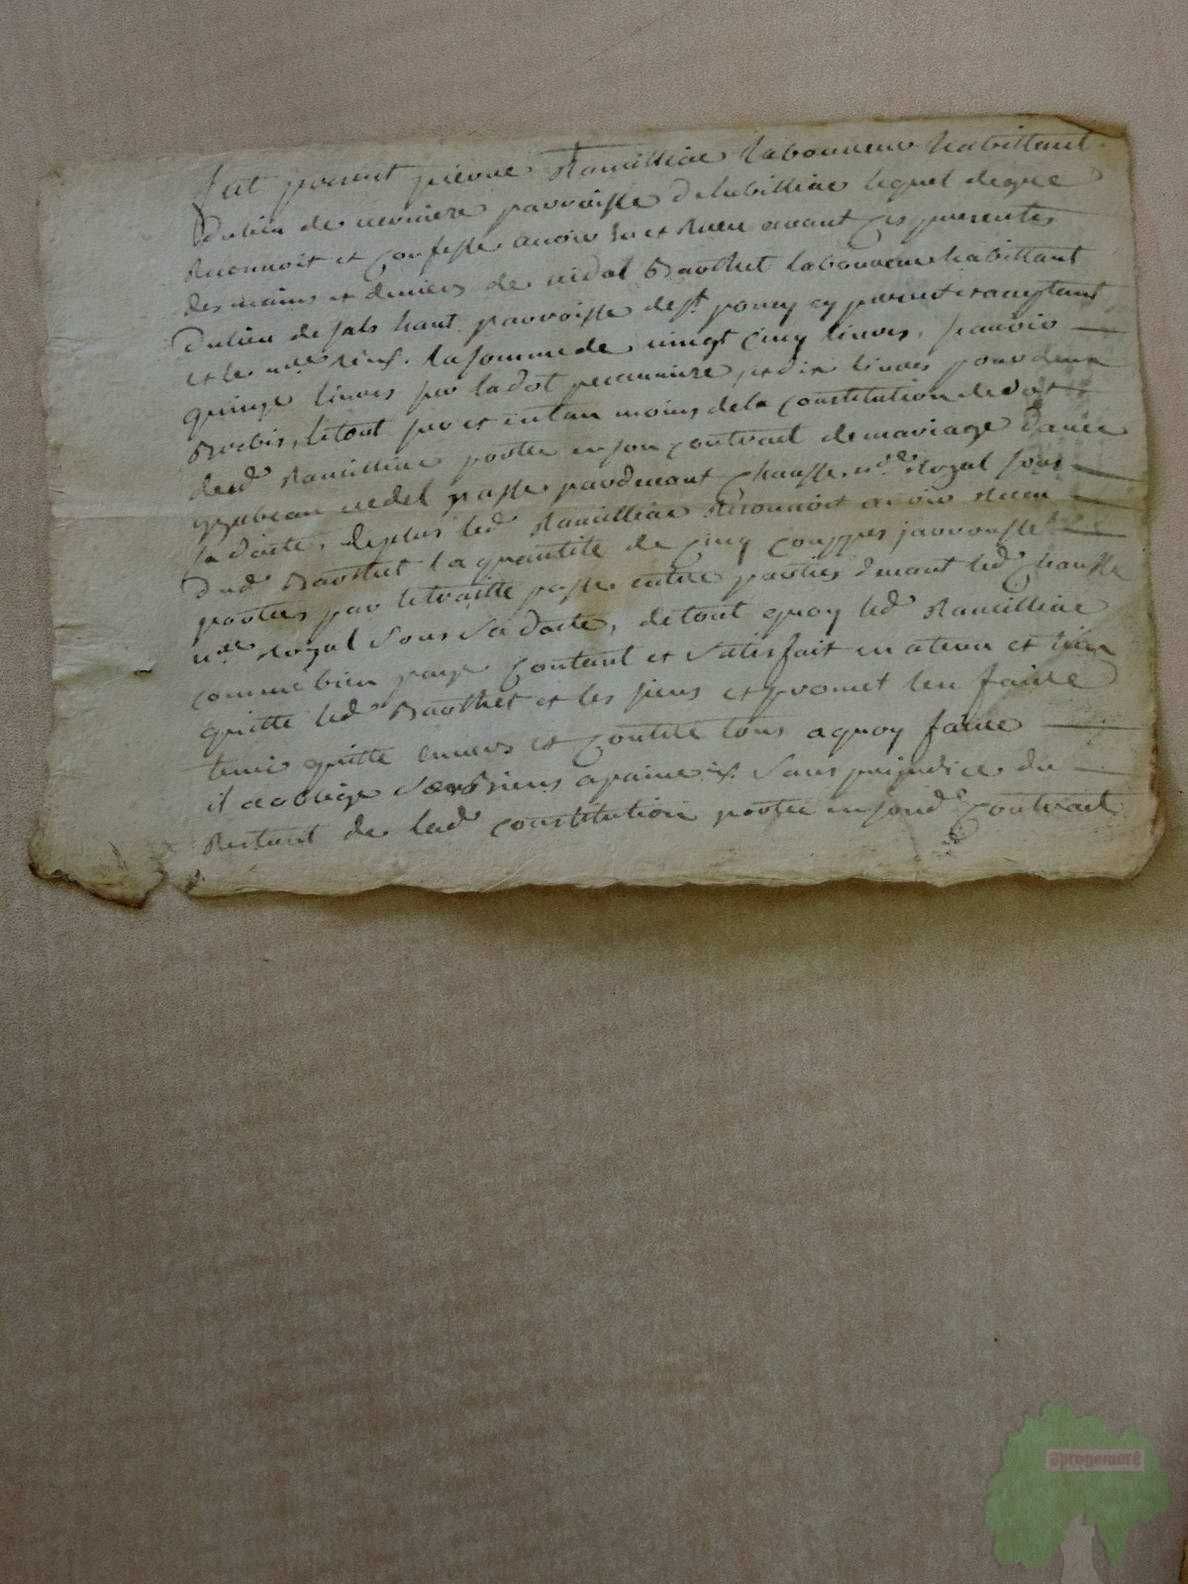 fut present pierre Ramilliac laboureur habittant
du lieu de verniere parroisse de lubilliac lequel de gre
Reconnoit et confesse avoir heu et Receu avant ces presentes
des mains et deniers de vidal Barthet laboureur habittant
du lieu de sals haut parroisse de st poncy cy present et acceptant
et le nre sins. la somme de vingt cinq livres, scavoir
quinze livres pour la dot pecunniere et dix livres pour deux
Brebis, le tout pour et entan moins de la constitution de dot
dud Ramilliac portee en son contrait de mariage d'avec
yzabeau vedel passe pardevant Chausse nre Royal sous
sa datte, de plus led Ramilliac Reconnoit avoir Receu
dud Barthet la quantite de cinq couppes
portees par le traitte passe entre parties devant led Chausse
nre Royal sous sa datte, de tout quoy led Ramilliac
comme bien paye contant et satisfait en a tenu et tien
quitte led Barthet et les siens et promet len faire
tenir quitte envers et contre tous a quoy faire
il a oblige ses Biens a paine &. sans prejudice du
Restant de lad constitution portee en sond contrait
@progenere